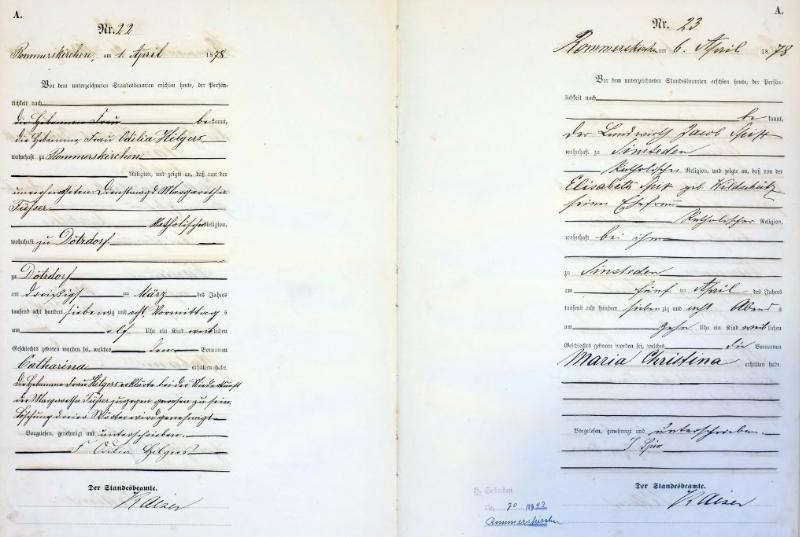 A.
Nr. 22
Rommerskirchen, am 1. April 1878
Vor dem unterzeichneten Standesbeamten erschien heute, der Persön-
lichkeit nach
die Hebamme Frau bekannt,
die Hebamme Frau Cäcilia Hilgers
wohnhaft zu Rommerskirchen
Religion, und zeigte an, daß von der
unverehelichten Dienstmagd Margaretha
Fußer
katholischer Religion,
wohnhaft zu Dötzdorf
zu Dötzdorf
am dreißigsten März des Jahres
tausend acht hundert siebenzig und acht Vormittags
um elf Uhr ein Kind weiblichen
Geschlechts geboren worden sei, welches den Vornamen
Catharina
erhalten habe.
die Hebamme Frau Hilgers erklärte bei der Niederkunft
der Margaretha Fußer zugegen gewesen zu sein.
Löschung Wörter wird genehmigt
Vorgelesen, genehmigt und unterschrieben
F Cäcilia Hilgers
Der Standesbeamte.
Kaiser
A.
Nr. 23
Rommerskirchen am 6. April 1878
Vor dem unterzeichneten Standesbeamten erschien heute, der Persön-
lichkeit nach
bekannt,
der Landwirth Jacob
wohnhaft zu Sinsteden
katholischer Religion, und zeigte an, daß von der
Elisabeth geb Wildschütz
seiner Ehefrau
katholischer Religion,
wohnhaft bei ihm
zu Sinsteden
am fünften April des Jahres
tausend acht hundert siebenzig und acht Abends
um zehn Uhr ein Kind weiblichen
Geschlechts geboren worden sei, welches die Vornamen
Maria Christina
erhalten habe.
Vorgelesen, genehmigt und unterschrieben
J
Der Standesbeamte.
Kaiser
Nr. 70 1942
Rommerskirchen